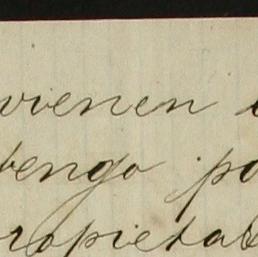 vienen
tengo po
ropietad